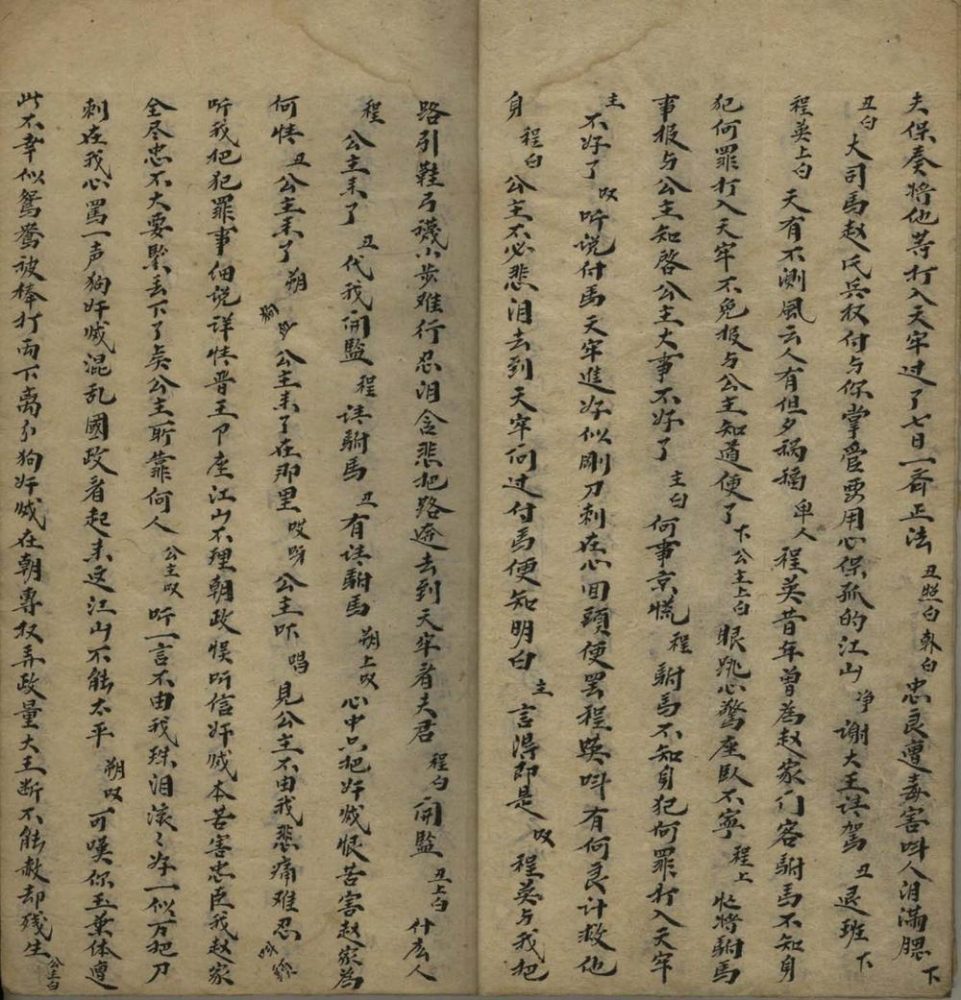 夫保奏将他等打入天牢过了七日一斉正法 丑照白 外白 忠良遭毒害叫人泪满腮 下
丑白 大司馬赵氏兵权付与你掌管要用心保孤的江山 净 谢大王请驾 丑 退班 下
程英上白 天有不测風云人有但夕祸福 卑人 程英昔年曾為赵家们客駙馬不知身
犯何罪打入天牢不免报与公主知道便了 下 公主上白 眼跳心驚座臥不寧 程上 忙将駙馬
事报与公主知啓公主大事不好了 主白 何事京慌 程 駙馬不知身犯何罪打入天牢
主 不好了 叹 听说付馬天牢進好似刚刀刺在心回頭便罢程英叫有何良计救他
身 程白 公主不必悲泪去到天牢问过付馬便知明白 主 言得即是 叹 程英与我把
路引鞋弓襪小步难行忍泪含悲把路進去到天牢看夫君 程白 開監 丑上白 什么人
程 公主来了 丑 代我開監 程 请駙馬 丑 有请駙馬 朔上叹 心中只把奸贼恨苦害赵家為
何情 丑 公主来了 朔 公主来了在那里 哎呀 公主吓 唱 見公主不由我悲痛难忍
听我把犯罪事细说详情晋王卩座江山不理朝政悮听信奸贼本苦害忠臣我赵家
全尽忠不大要緊丢下了矣公主所靠何人 公主叹 听一言不由我珠泪滚〻好一似万把刀
刺在我心罵一声狗奸贼混乱國政看起来这江山不能太平 朔叹 可嘆你玉葉体遭
此不幸似鴛鴦被棒打両下离分狗奸贼在朝專权弄政量大王断不能赦却残生 公主白